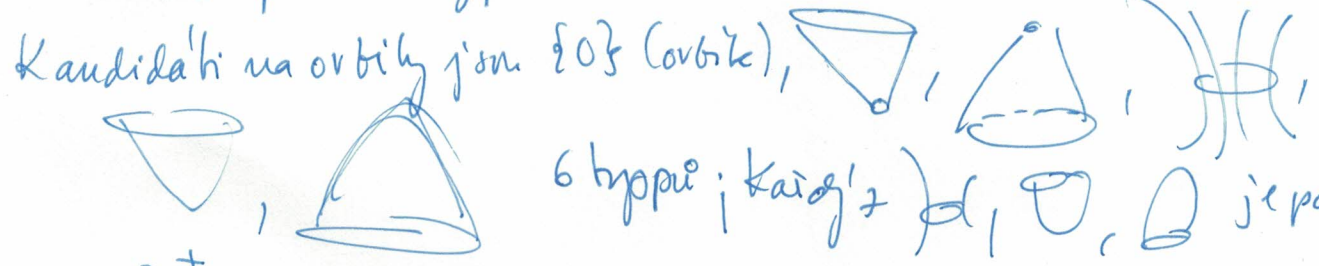 Kandidáti na orbity jsou {0} (orbit), , , ,
, 6 typů; každý z , , je